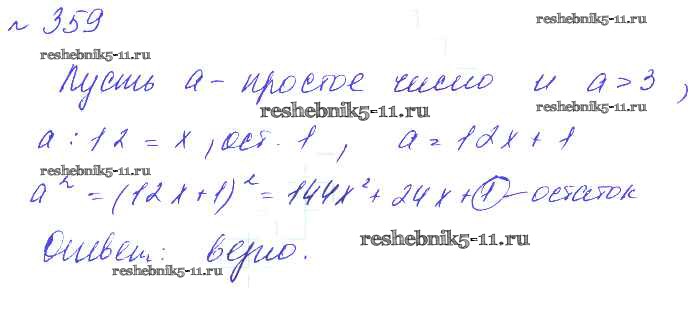 № 359
reshebnik5-11.ru
reshebnik5-11.ru
Пусть a - простое число и a > 3,
reshebnik5-11.ru
reshebnik5-11.ru
a : 12 = x, ост. 1, a = 12x + 1
reshebnik5-11.ru
a² = (12x+1)² = 144x² + 24x + 1 - остаток
reshebnik5-11.ru
Ответ: верно.
reshebnik5-11.ru
reshebnik5-11.ru